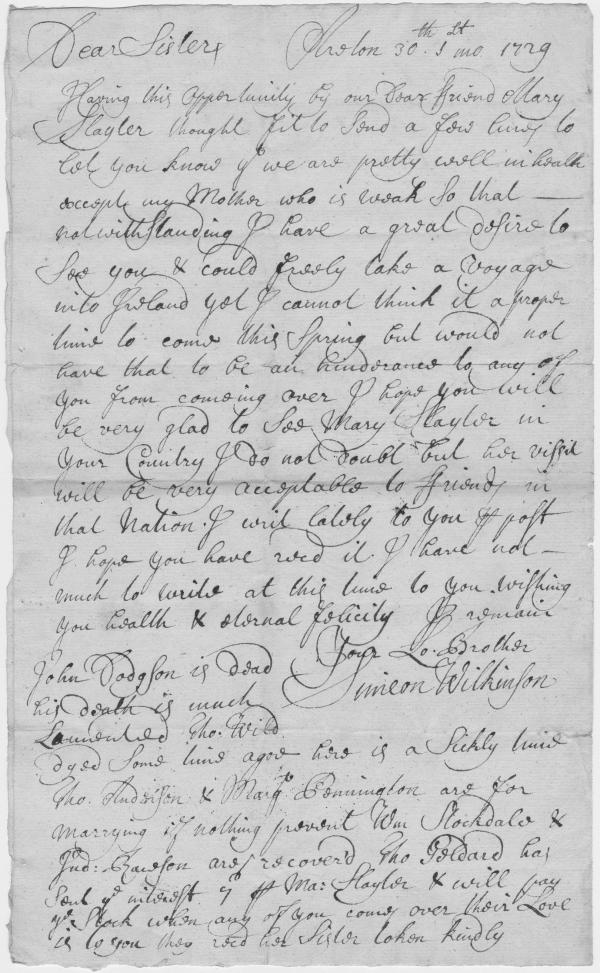 Dear Sister Areton 30th 1st mo. 1729
Having this oppertunity by our Dear ffriend Mary
Slayter thought fit to Send a few lines to
let you know yt we are pretty well in health
except my Mother who is weak so that —
notwithstanding I have a great desire to
See you & could freely take a Voyage
into Ireland yet I cannot think it a proper
time to come this Spring but would not
have that to be an hinderance to any of
you from comeing over I hope you will
be very glad to See Mary Slayter in
your Country I do not doubt but her vissit
will be very acceptable to ffriends in
that Nation. I writ lately to you p post
I hope you have recd it. I have not —
much to write at this time to you wishing
you health & eternal felicity I remain
Your Lo. Brother
Simeon Wilkinson
John Dodgson is dead
his death is much
Lamented Tho. Wild
dyed Some time agoe here is a Sickly time
Tho. Anderson & Margt Pennington are for
marrying if nothing prevent Wm Stockdale &
are recovered Tho Geldard has
Sent ye interest p Ma: Slayter & will pay
ye Stock when any of you comes over their Love
is to you they recd her Sister token kindly